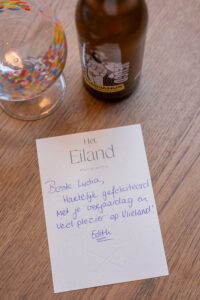 Het
Eiland
Beste Lydia,
Hartelijk gefeliciteerd
met je verjaardag en
veel plezier op Vlieland!
Edith